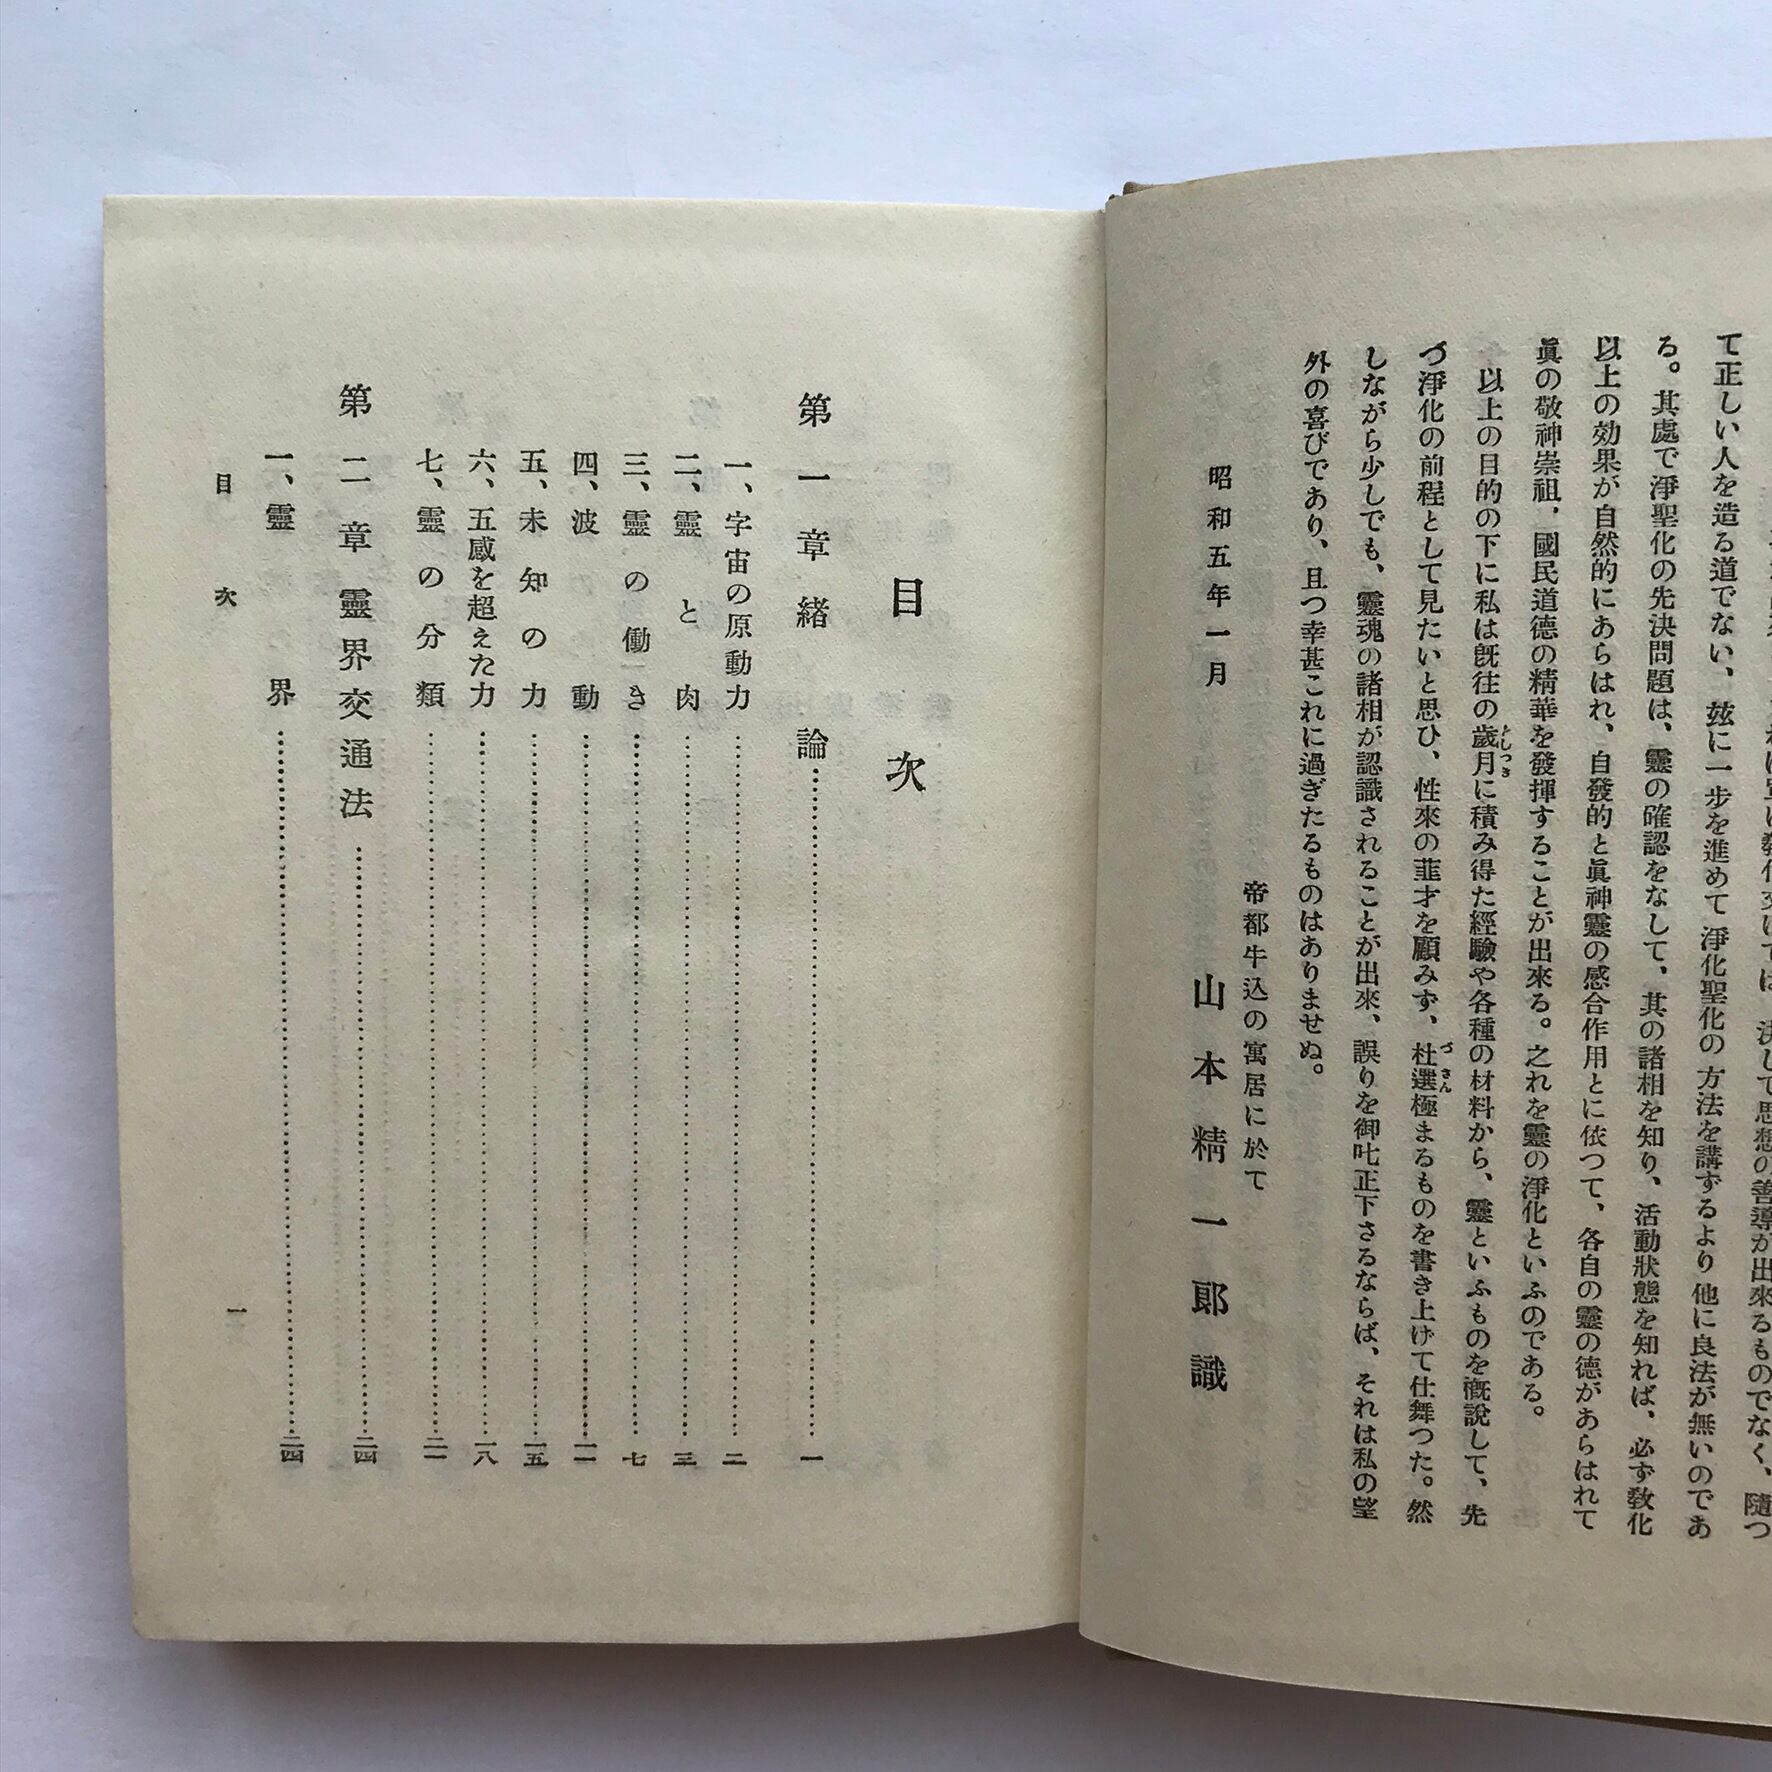 て正しい人を造る道でない、玆に一步を進めて淨化聖化の方法を講ずるより他に良法が無いのであ
る。其處で淨聖化の先決問題は、靈の確認をなして、其の諸相を知り、活動狀態を知れば、必ず敎化
以上の効果が自然的にあらはれ、自發的と眞神靈の感合作用とに依つて、各自の靈の德があらはれて
眞の敬神崇祖、國民道德の精華を發揮することが出來る。之れを靈の淨化といふのである。
以上の目的の下に私は旣往の歲月に積み得た經驗や各種の材料から、靈といふものを槪說して、先
としつき
づ淨化の前程として見たいと思ひ、性來の韮才を顧みず、杜選極まるものを書き上げて仕舞つた。然
づさん
しながら少しでも、靈魂の諸相が認識されることが出來、誤りを御叱正下さるならば、それは私の望
外の喜びであり、且つ幸甚これに過ぎたるものはありませぬ。
帝都牛込の寓居に於て
昭和五年一月
山本精一郞識
目次
第一章 緖論……一
一、宇宙の原動力……二
二、靈と肉……三
三、靈の働き……七
四、波動……一一
五、未知の力……一五
六、五感を超えた力……一八
七、靈の分類……二一
第二章 靈界交通法……二四
一、靈界……二四
目次
一